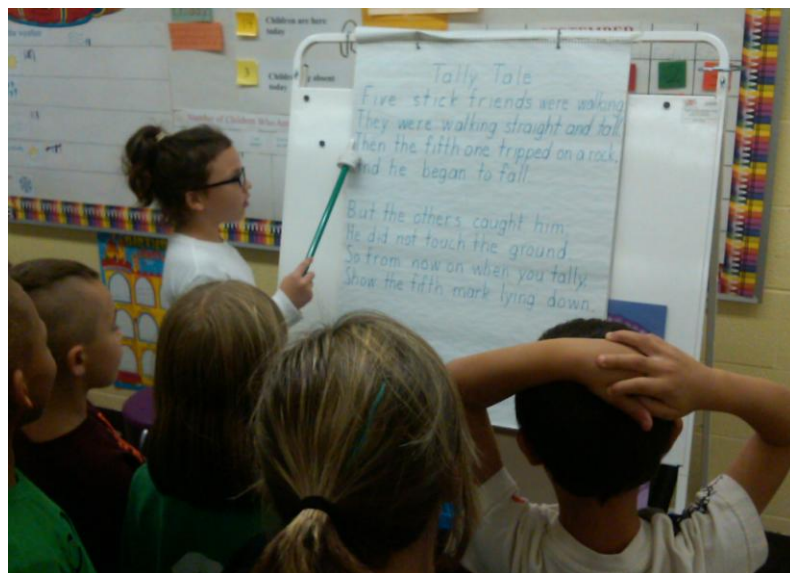 Children are here
today
Children absent
today
Tally Tale
Five stick friends were walking
They were walking straight and tall.
Then the fifth one tripped on a rock,
And he began to fall.
But the others caught him,
He did not touch the ground.
So from now on when you tally,
Show the fifth mark lying down.